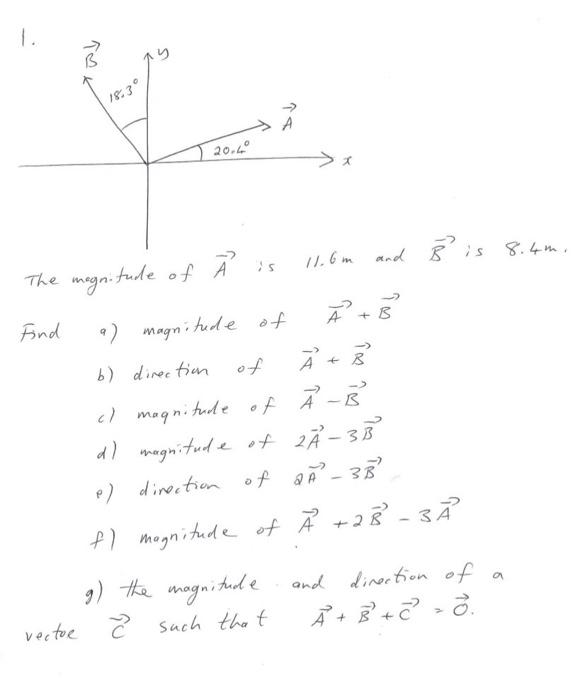 1.
B⃗
y
18.3°
A⃗
20.4°
x
The magnitude of A⃗ is 11.6m and B⃗ is 8.4m.
Find a) magnitude of A⃗ + B⃗
b) direction of A⃗ + B⃗
c) magnitude of A⃗ - B⃗
d) magnitude of 2A⃗ - 3B⃗
e) direction of 2A⃗ - 3B⃗
f) magnitude of A⃗ + 2B⃗ - 3A⃗
g) the magnitude and direction of a
vector C⃗ such that A⃗ + B⃗ + C⃗ = 0⃗.